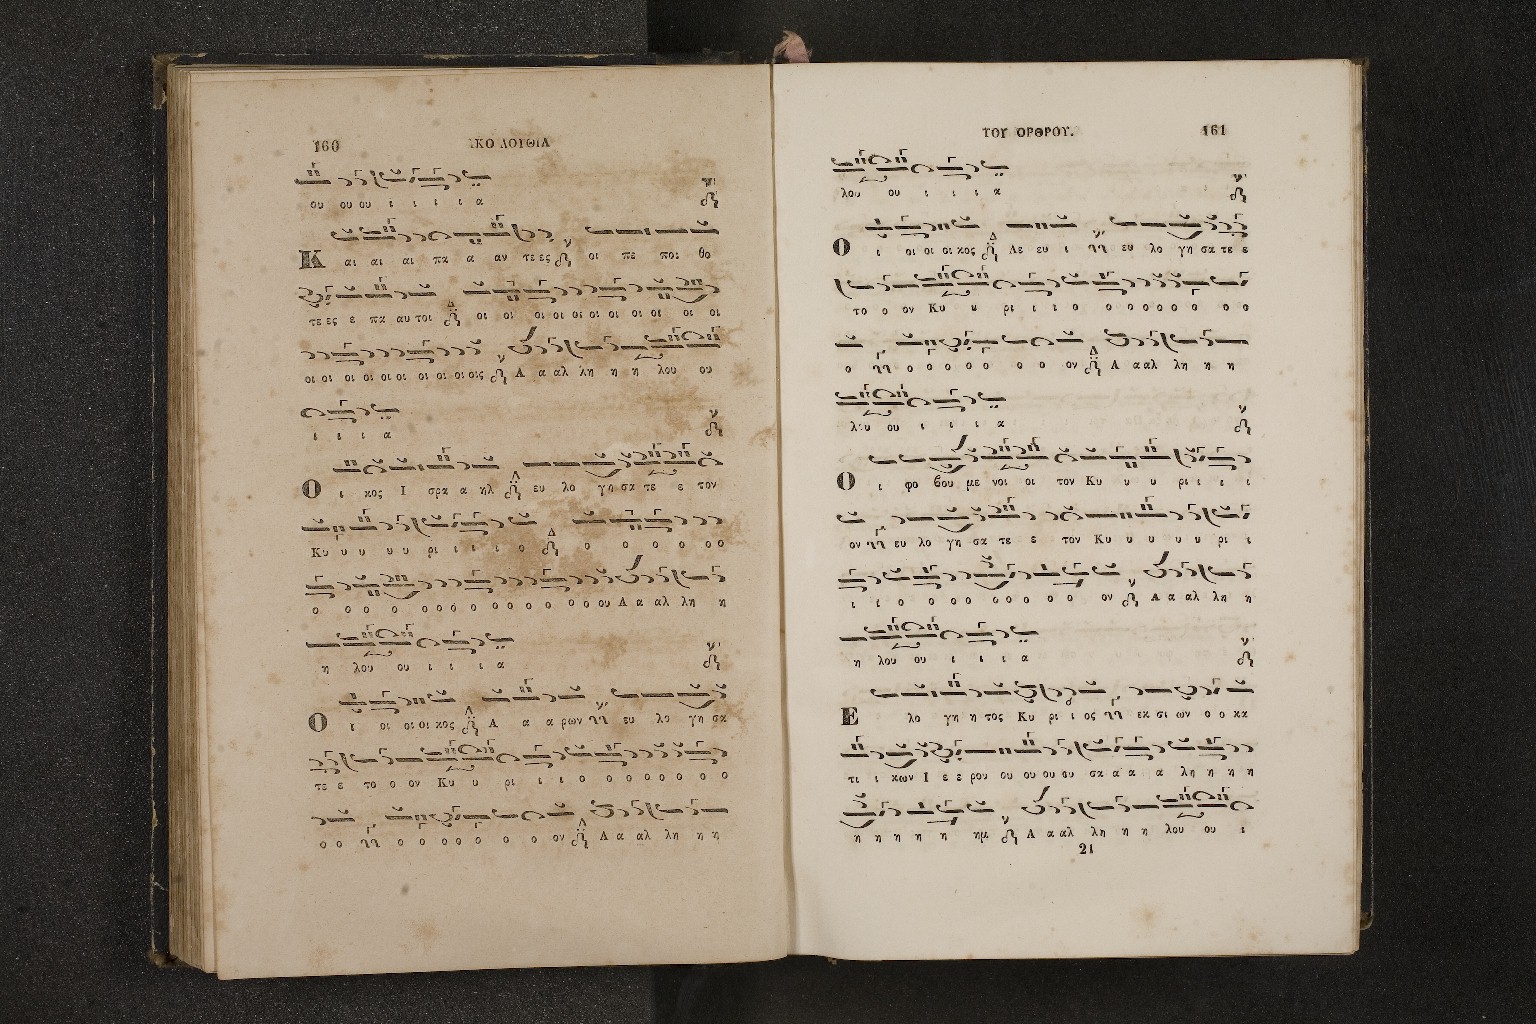 160 ΙΚΟΛΟΥΘΙΑ
ου ου ου ι ι ι ι α
Και αι αι πα α αν τε ες οι πε ποι θο
τε ες ε πα αυ τοι οι οι οι οι οι οι οι οι οι οι οι
οι οι οι οι οι οι οι οι οι οι οις Α α αλ λη η η λου ου
ι ι ι α
Ο ι κος Ι σρα α ηλ ευ λο γη σα τε ε τον
Κυ υ υ υ υ ρι ι ι ι ο ο ο ο ο ο ο
ο ο ο ο ο ο ο ο ο ο ο ο ο ο ο ου Α α αλ λη η
η λου ου ι ι ι α
Ο ι οι οι οι κος Α α α ρων ευ λο γη σα
τε ε το ο ον Κυ υ ρι ι ι ο ο ο ο ο ο ο ο
ο ο ο ο ο ο ο ο ο ο ον Α α αλ λη η η
ΤΟΥ ΟΡΘΡΟΥ. 161
λου ου ι ι ι α
Ο ι οι οι οι κος Λε ευ ι ευ λο γη σα τε ε
το ο ον Κυ υ ρι ι ι ο ο ο ο ο ο ο ο ο
ο ο ο ο ο ο ο ο ον Α α αλ λη η η
λου ου ι ι ι α
Ο ι φο βου με νοι οι τον Κυ υ υ υ ρι ι ι ι
ον ευ λο γη σα τε ε τον Κυ υ υ υ υ ρι ι
ι ι ο ο ο ο ο ο ο ο ο ον Α α αλ λη η
η λου ου ι ι ι α
Ε λο γη η τος Κυ ρι ι ος εκ σι ων ο ο κα
τι ι κων Ι ε ε ρου ου ου ου ου σα α α α λη η η η
η η η η η ημ Α α αλ λη η η λου ου ι
21